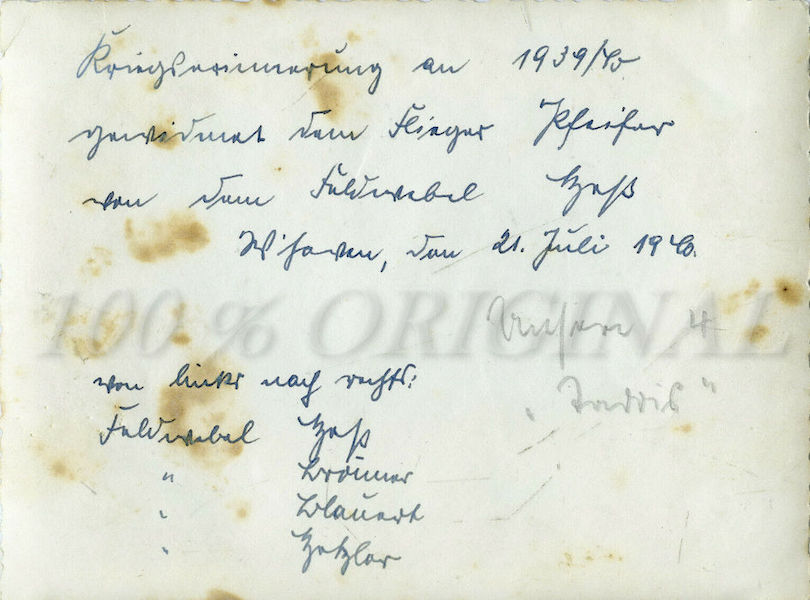 Kriegserinnerung an 1939/40
gewidmet dem Flieger Pfeifer
von dem Feldwebel Heß
W'haven, den 21. Juli 1940.
100 % ORIGINAL
Unsere 4
„ "
von links nach rechts:
Feldwebel Heß
" Brönner
" Blauert
" Hetzler